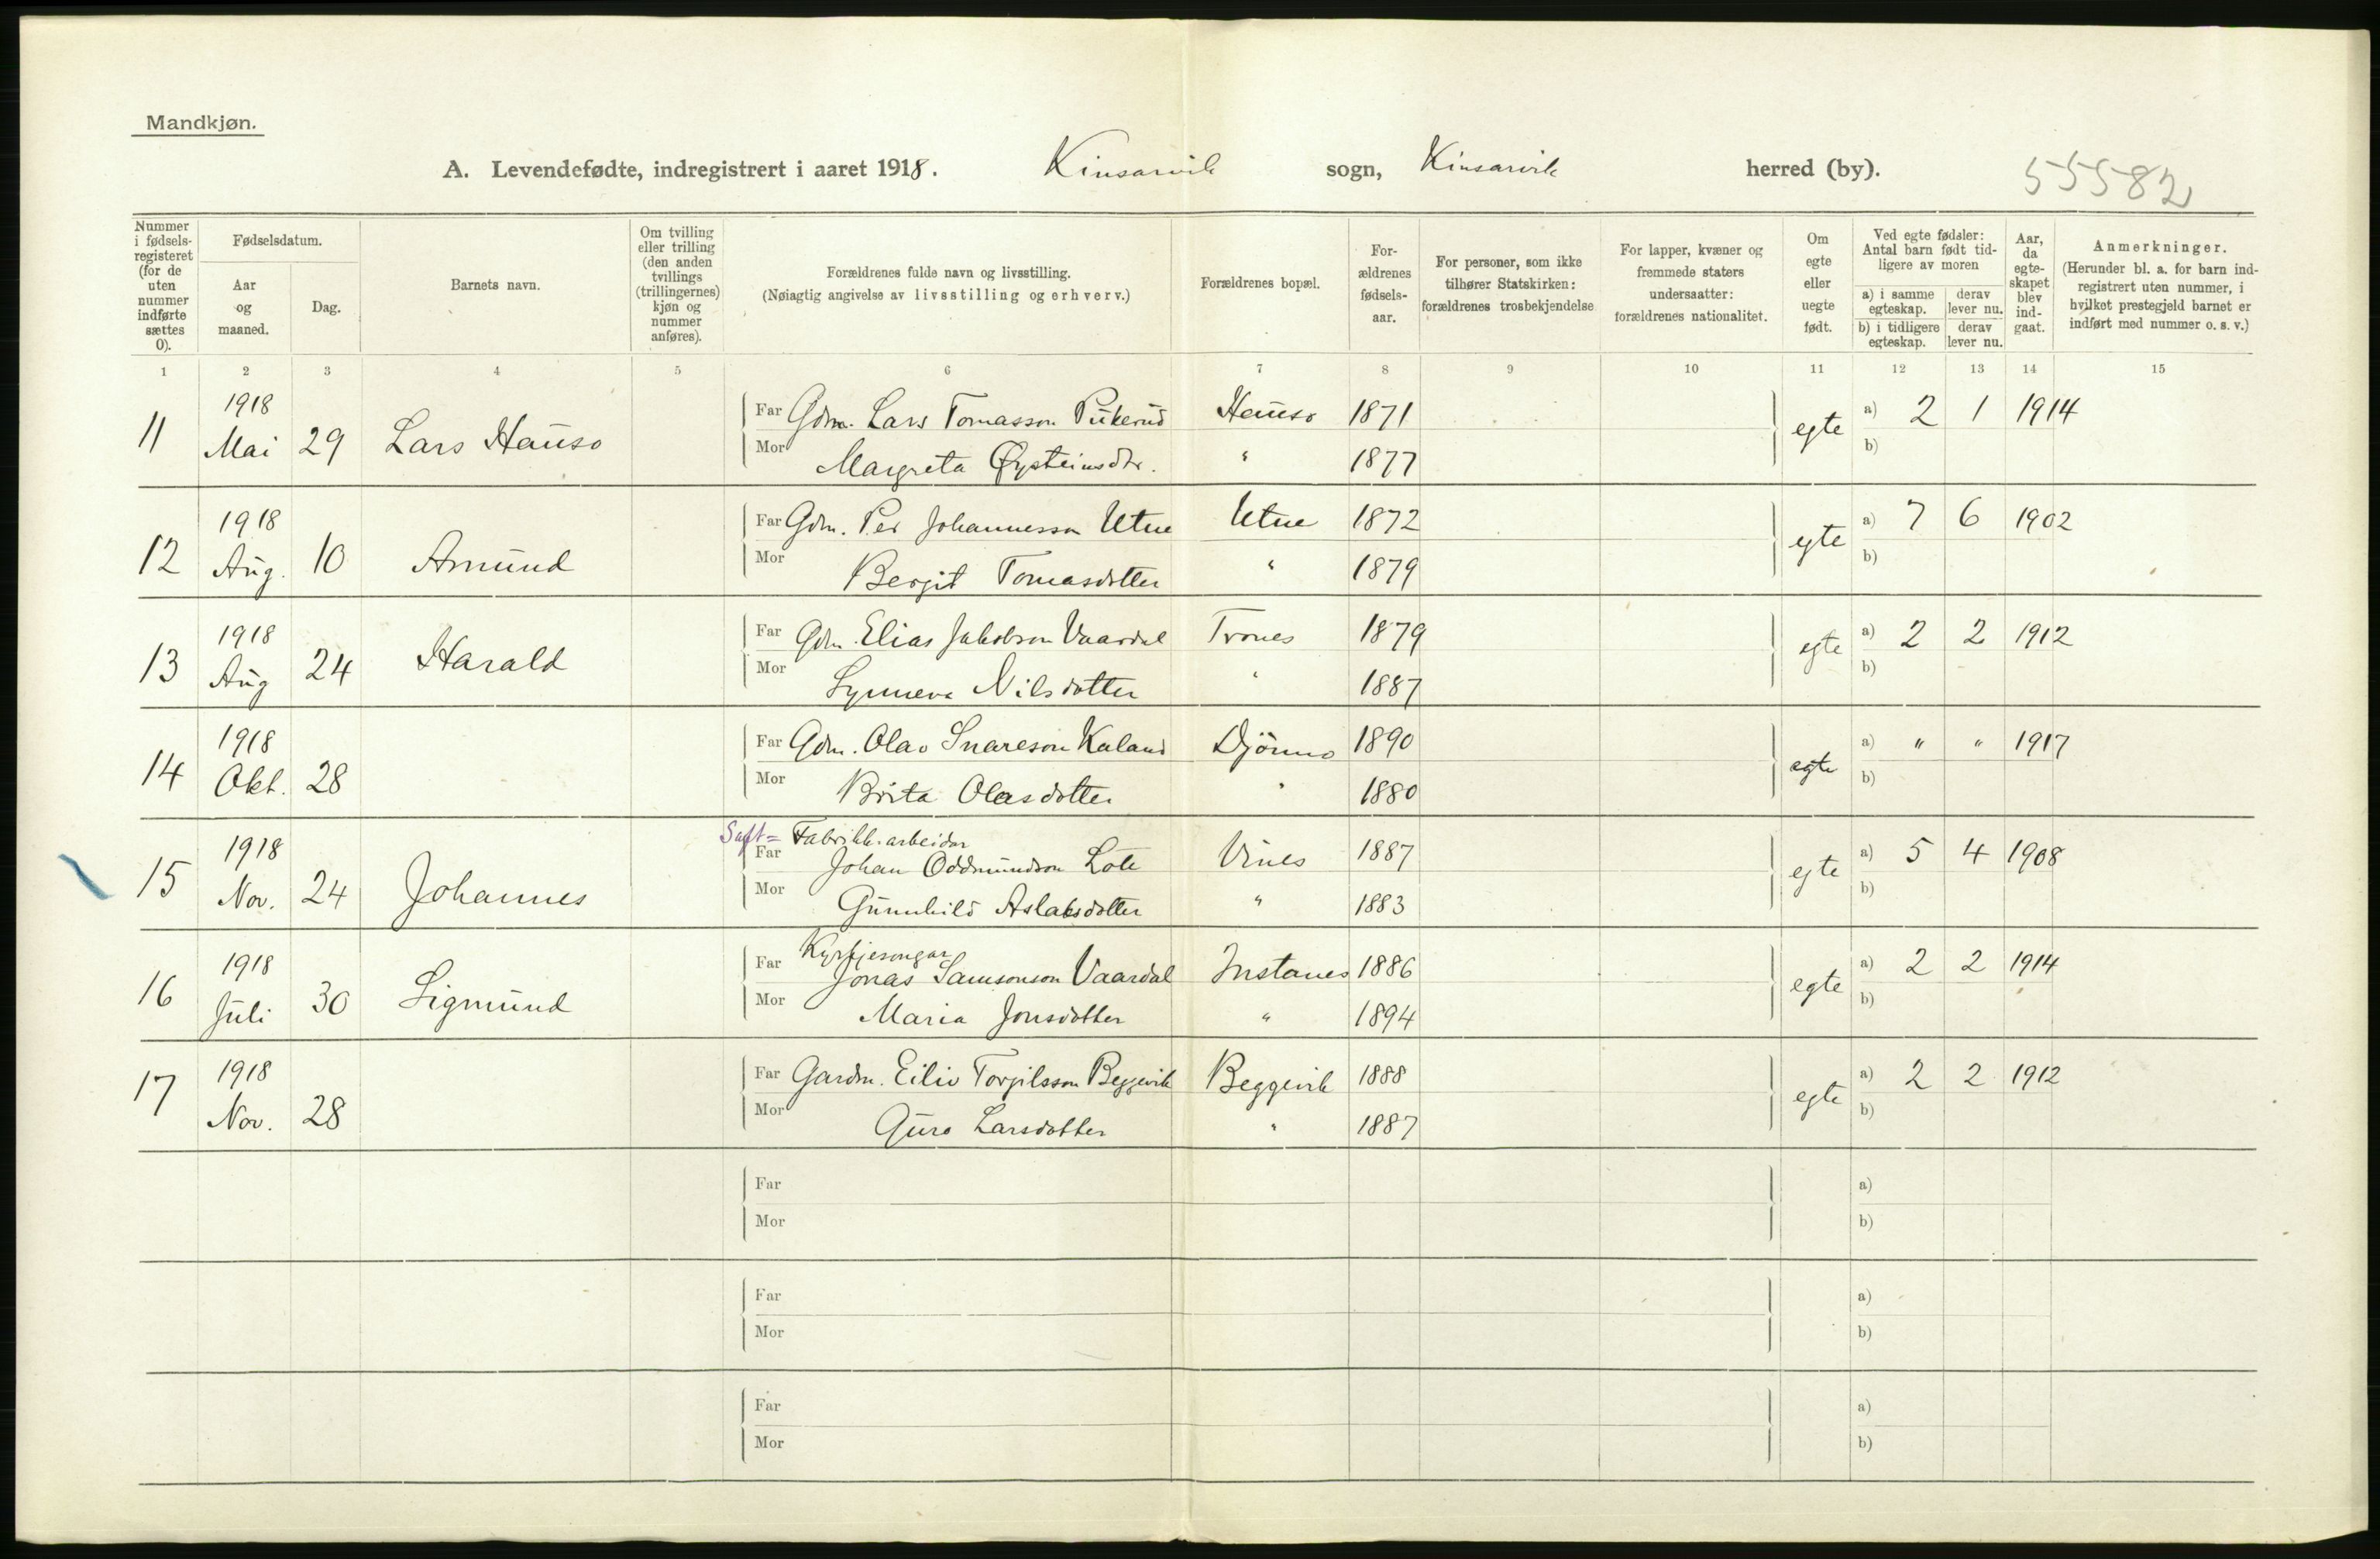 Mandkjøn.
A. Levendefødte, indregistrert i aaret 1918. Kinsarvik sogn, Kinsarvik herred (by). 55582
Nummer i fødsels-registeret (for de uten nummer indførte sættes 0).
Fødselsdatum.
Aar og maaned.
Dag.
Barnets navn.
Om tvilling eller trilling (den anden tvillings (trillingernes) kjøn og nummer anføres).
Forældrenes fulde navn og livsstilling.
(Nøiagtig angivelse av livsstilling og erhverv.)
Forældrenes bopæl.
For-ældrenes fødsels-aar.
For personer, som ikke tilhører Statskirken: forældrenes trosbekjendelse
For lapper, kvæner og fremmede staters undersaatter: forældrenes nationalitet.
Om egte eller uegte født.
Ved egte fødsler: Antal barn født tid-ligere av moren
a) i samme egteskap.
derav lever nu.
b) i tidligere egteskap.
derav lever nu.
Aar, da egte-skapet blev ind-gaat.
Anmerkninger.
(Herunder bl. a. for barn ind-registrert uten nummer, i hvilket prestegjeld barnet er indført med nummer o. s. v.)
1 2 3 4 5 6 7 8 9 10 11 12 13 14 15
11 1918 Mai 29 Lars Hauso
Far Gdm. Lars Tomasson Pukerud Hauso 1871 egte a) 2 1 1914
Mor Margreta Øysteinsdtr. " 1877 b)
12 1918 Aug. 10 Amund
Far Gdm. Per Johannesson Utne Utne 1872 egte a) 7 6 1902
Mor Bergit Tomasdotter " 1879 b)
13 1918 Aug 24 Harald
Far Gdm. Elias Jakobson Vaardal Trones 1879 egte a) 2 2 1912
Mor Synneva Nilsdotter " 1887 b)
14 1918 Okt. 28
Far Gdm. Olav Snareson Kaland Djönno 1890 egte a) " " 1917
Mor Brita Olasdotter " 1880 b)
Saft= Fabrikk.arbeidar
15 1918 Nov. 24 Johannes
Far Johan Oddmundson Lote Vines 1887 egte a) 5 4 1908
Mor Gunnhild Aslaksdotter " 1883 b)
Kyrkjesongar
16 1918 Juli 30 Sigmund
Far Jonas Samsonson Vaardal Instanes 1886 egte a) 2 2 1914
Mor Maria Jonsdotter " 1894 b)
17 1918 Nov. 28
Far Gardm. Eiliv Torgilsson Beggevik Beggevik 1888 egte a) 2 2 1912
Mor Guro Larsdotter " 1887 b)
Far a)
Mor b)
Far a)
Mor b)
Far a)
Mor b)